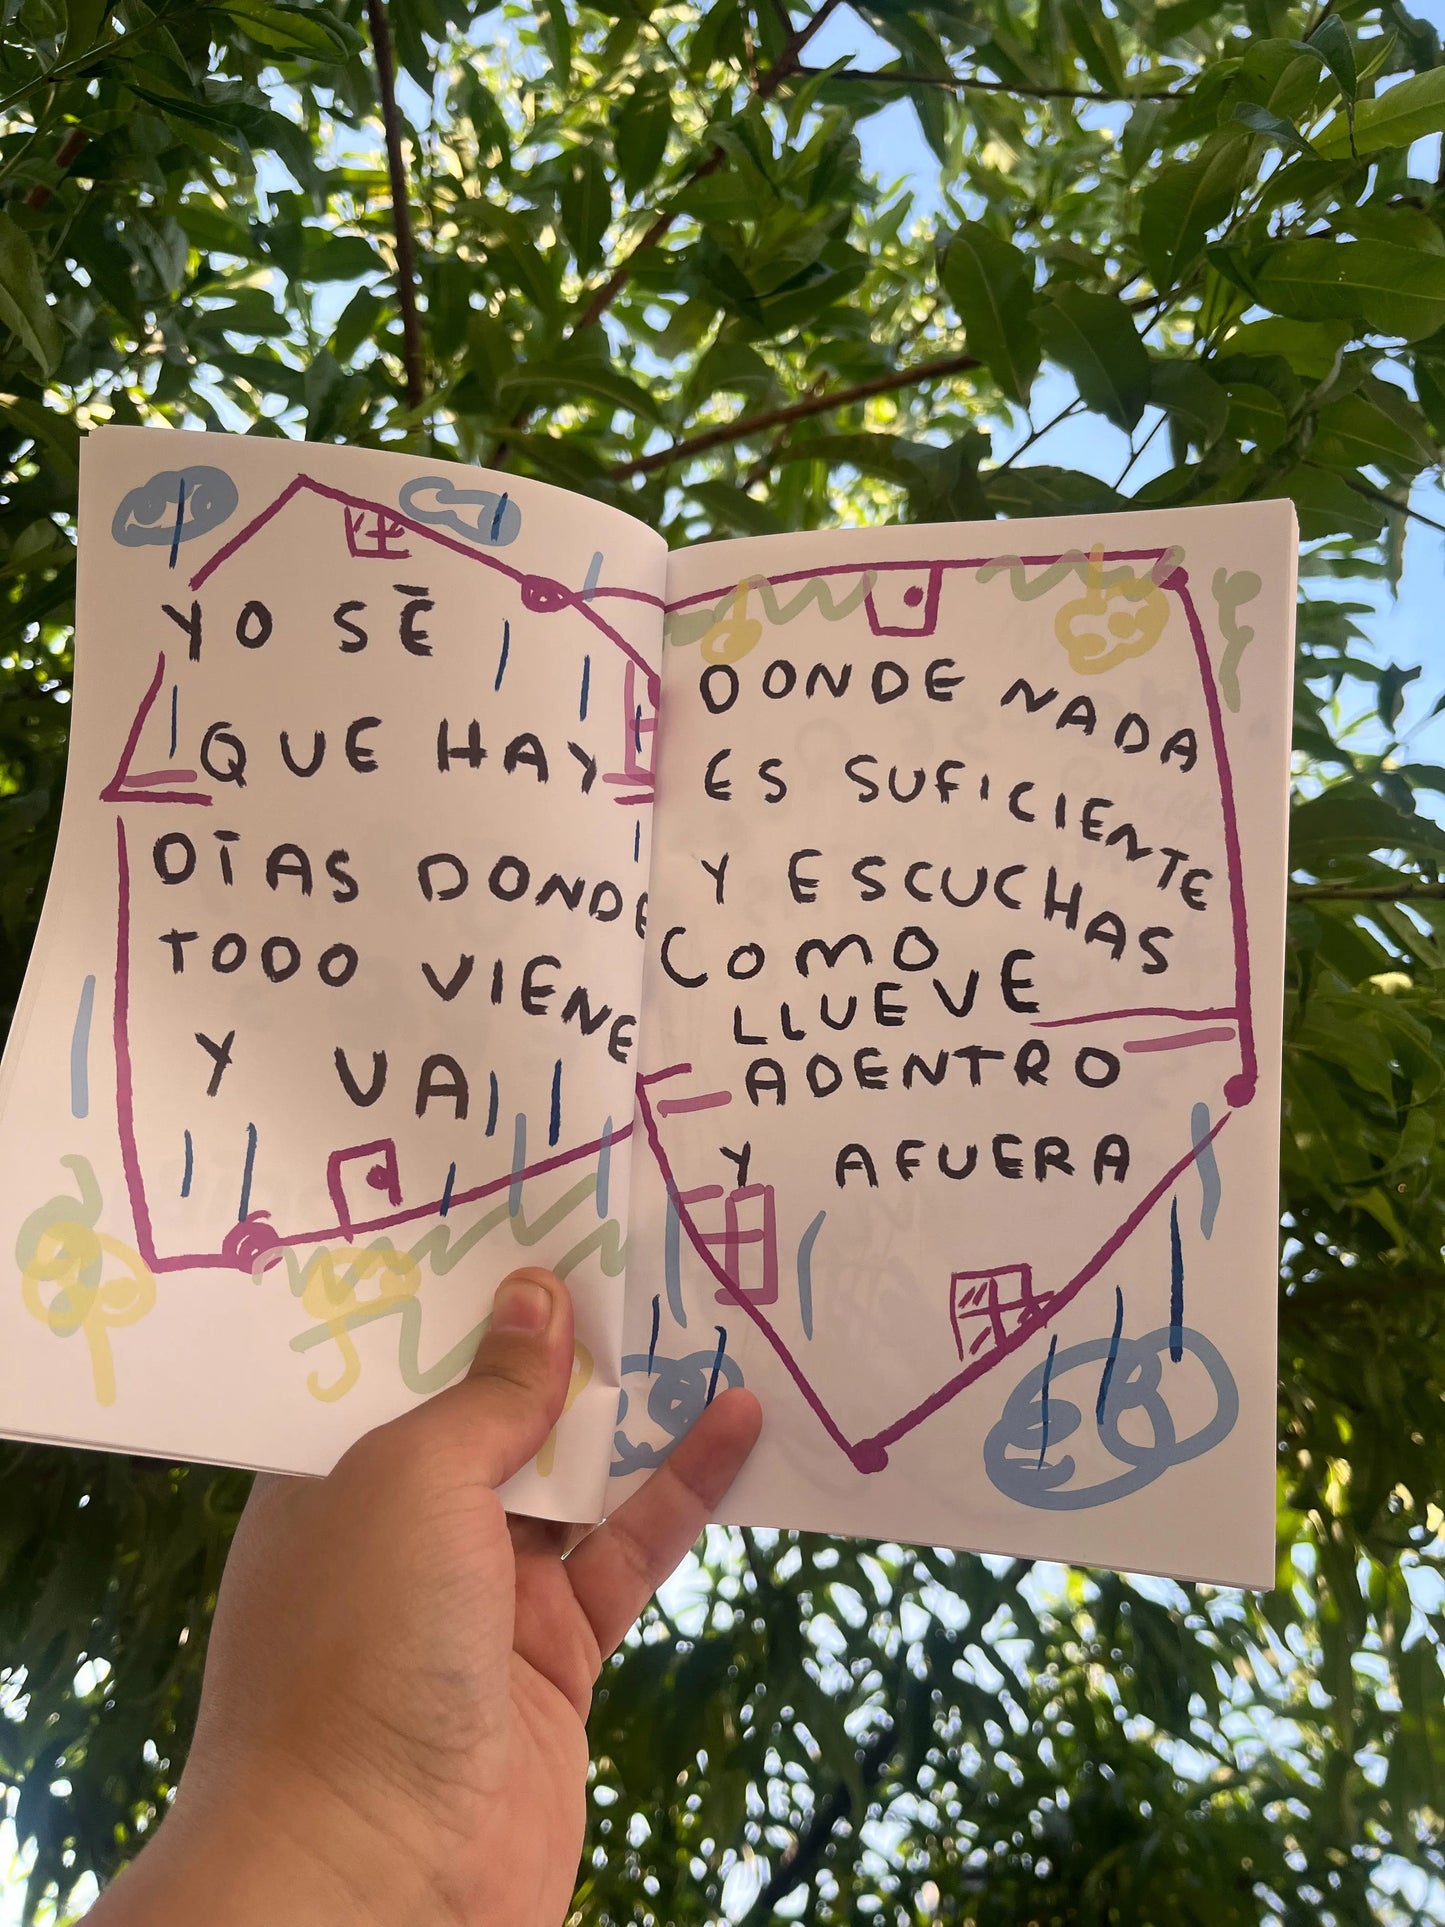 YO SĒ
QUE HAY
DĪAS DONDE
TODO VIENE
Y VA
DONDE NADA
ES SUFICIENTE
Y ESCUCHAS
COMO
LLUEVE
ADENTRO
Y AFUERA